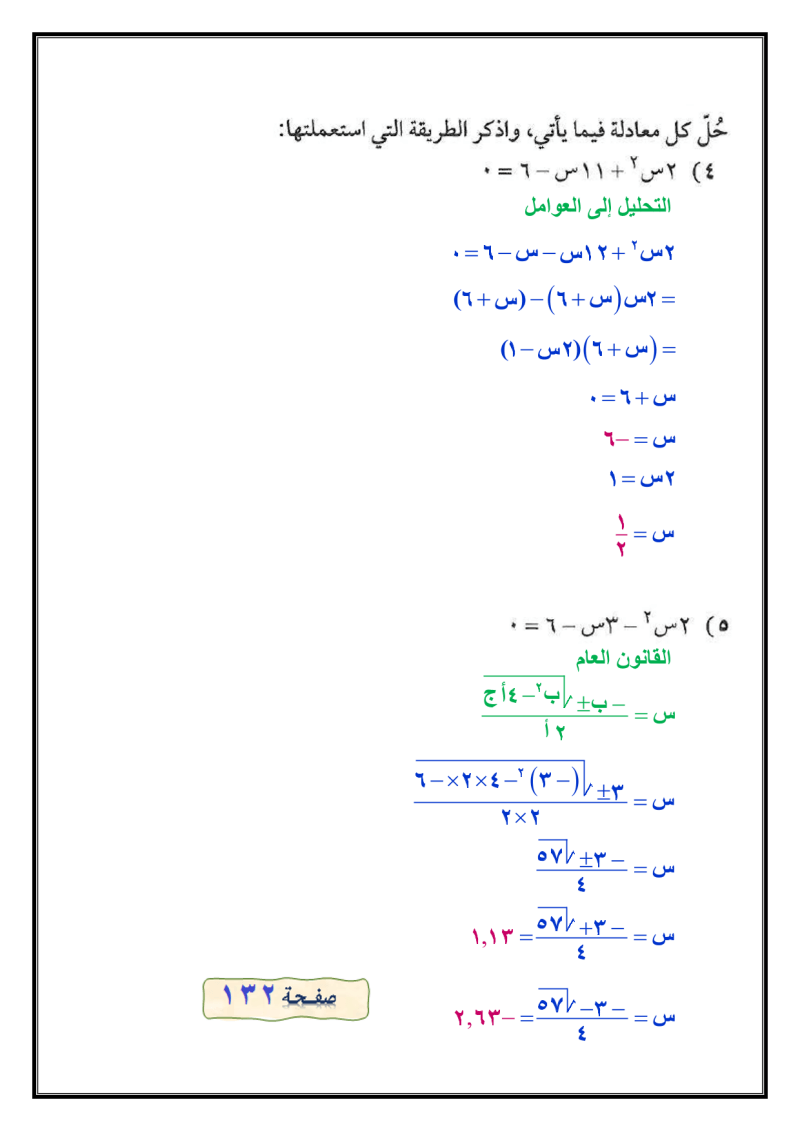 حُلّ كل معادلة فيما يأتي، واذكر الطريقة التي استعملتها:
٤) ٢س² + ١١س − ٦ = ٠
التحليل إلى العوامل
٢س² + ١٢س − س − ٦ = ٠
= ٢س(س + ٦) − (س + ٦)
= (س + ٦)(٢س − ١)
س + ٦ = ٠
س = −٦
٢س = ١
س = ١/٢
٥) ٢س² − ٣س − ٦ = ٠
القانون العام
س = (−ب ± √(ب² − ٤أج)) / ٢أ
س = (٣ ± √((−٣)² − ٤×٢×−٦)) / ٢×٢
س = (−٣ ± √٥٧) / ٤
س = (−٣ + √٥٧) / ٤ = ١,١٣
س = (−٣ − √٥٧) / ٤ = −٢,٦٣
صفحة ١٣٢